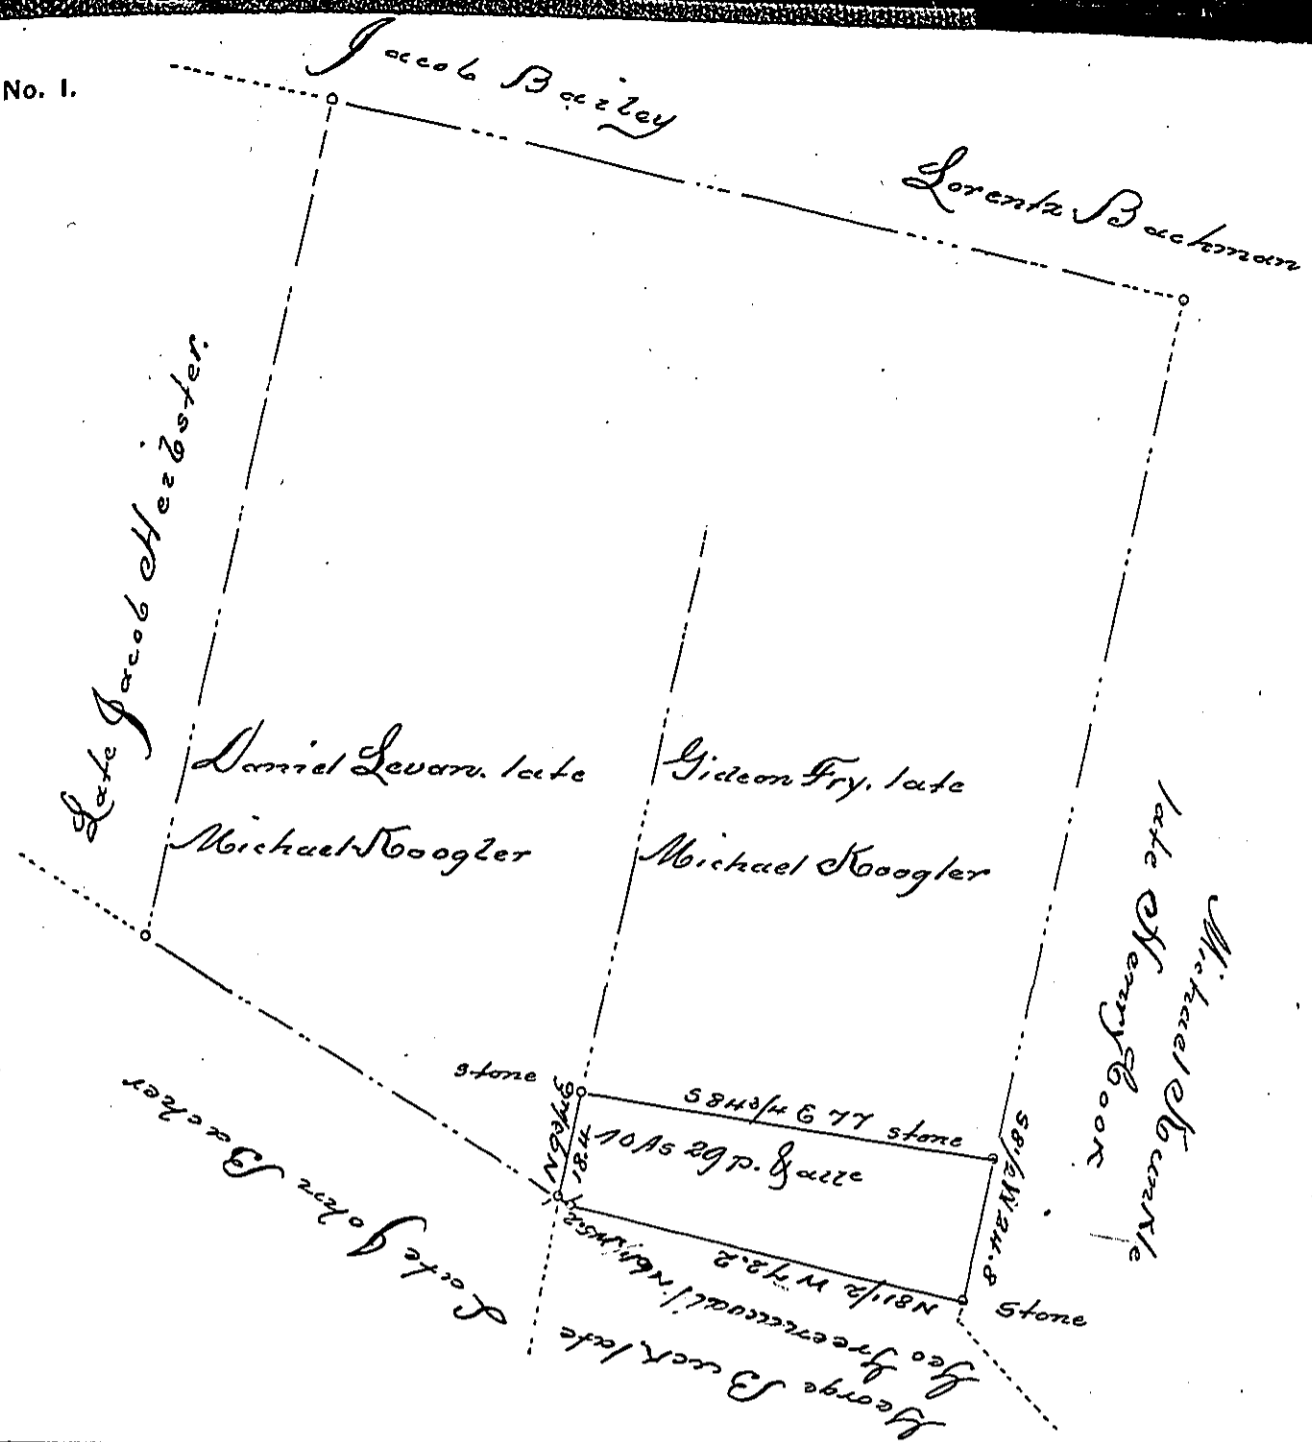 No. 1.
Jacob Bailey
Lorentz Bachman
Late Jacob Herbster.
Daniel Levan. late
Michael Koogler
Gideon Fry. late
Michael Koogler
Michael Kunkle
late Henry Cook
stone
S 84 3/4 E 77 stone
18.4
10 As 29 p.
S 8 1/2 W 24.8
N 81 1/2 W 72.2
Stone
Late John Bacher
George Buck, late
Geo Greenawalt